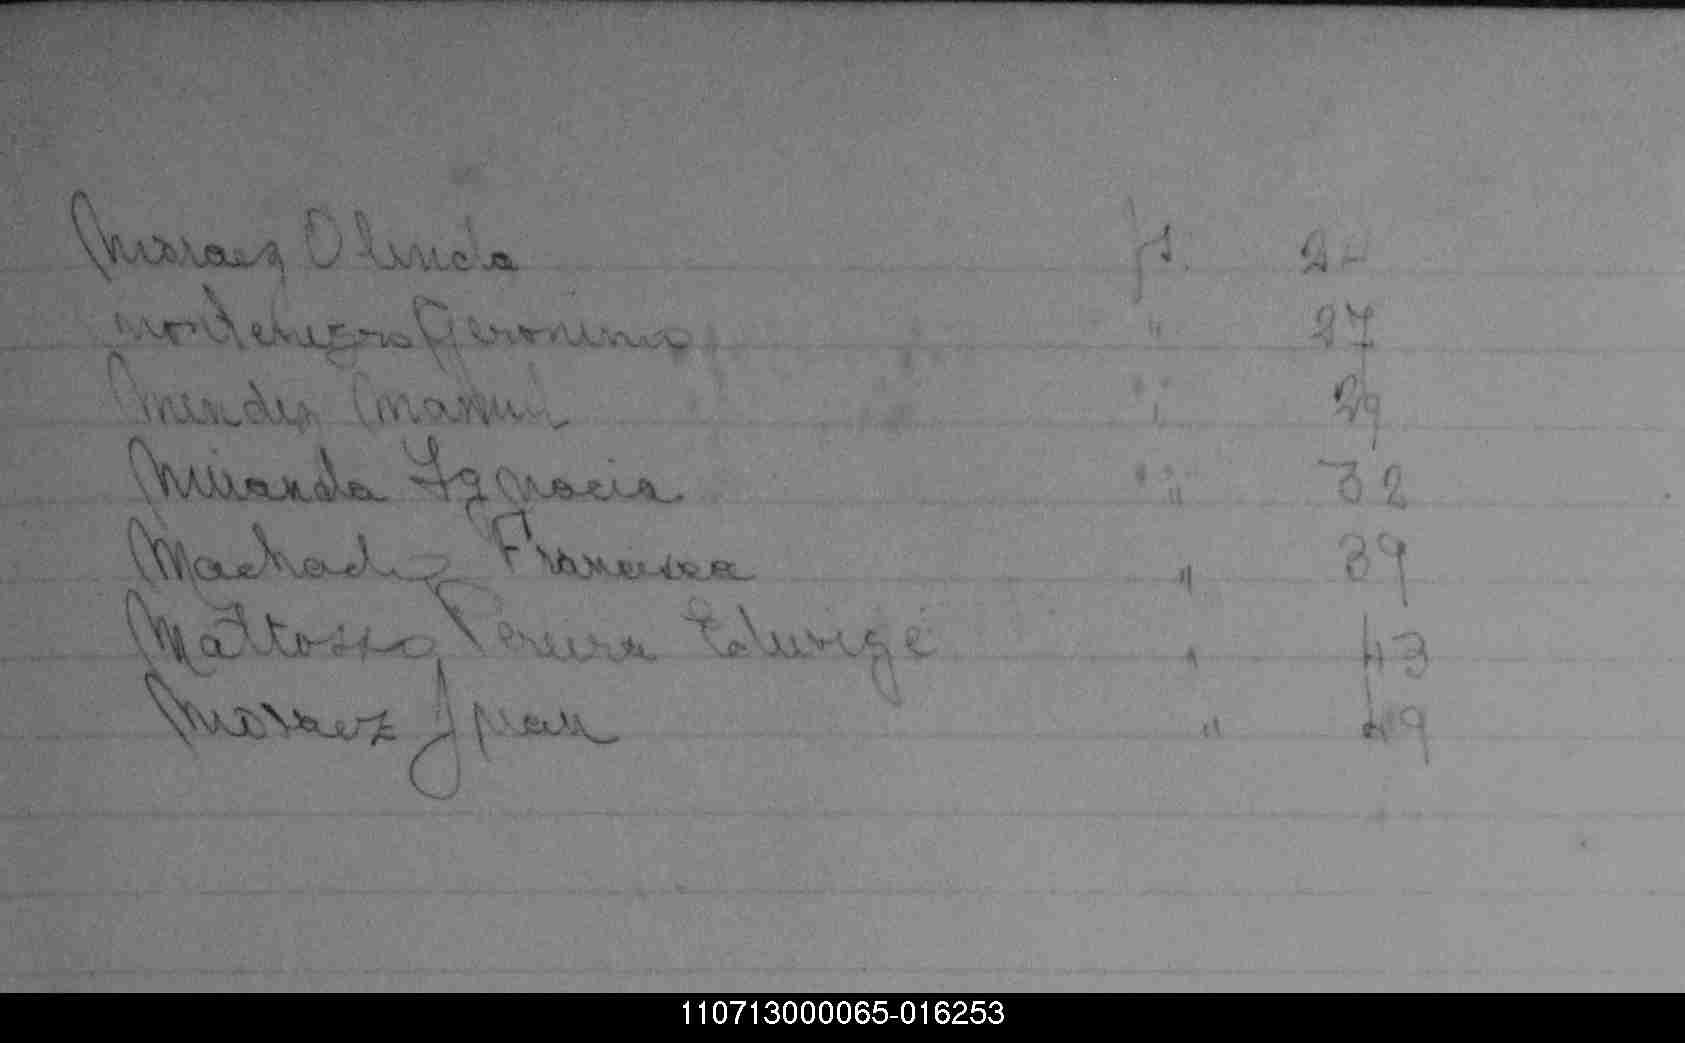 Moraez Olinda fs. 24
Montenegro Geronimo " 27
Mendez Manuel " 29
Miranda Ignacia " 32
Machado Francisca " 39
Mattosso Pereira Eduvige " 43
Moraez Juan " 49
110713000065-016253